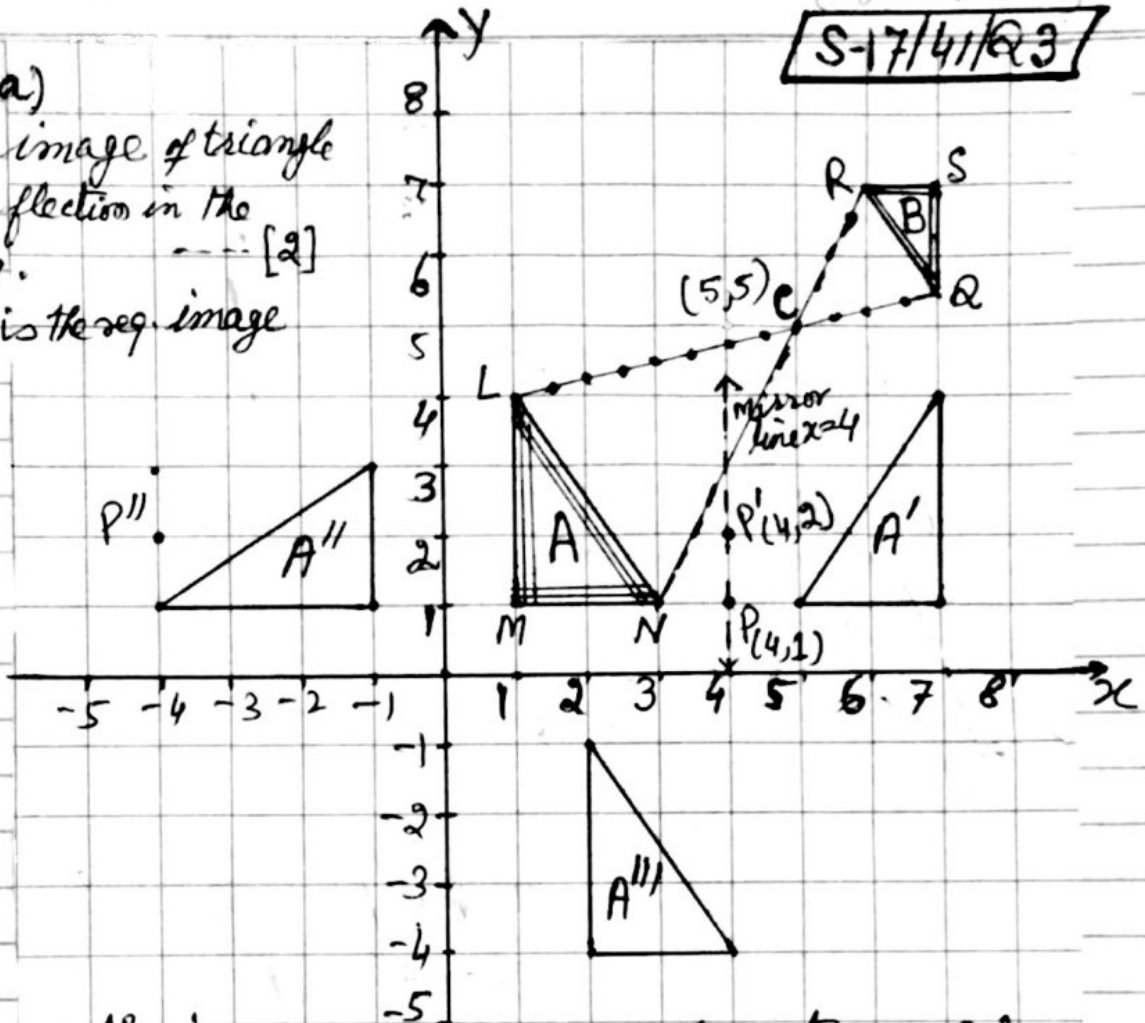 S-17/41/Q3
a)
image of triangle
flection in the
---- [2]
is the req. image
y
8
7
6
5
4
3
2
1
R
S
B
Q
(5,5) C
L
mirror
line x=4
P''
A''
A
P'(4,2)
A'
M
N
P(4,1)
-5 -4 -3 -2 -1 1 2 3 4 5 6 7 8 x
-1
-2
-3
A'''
-4
-5